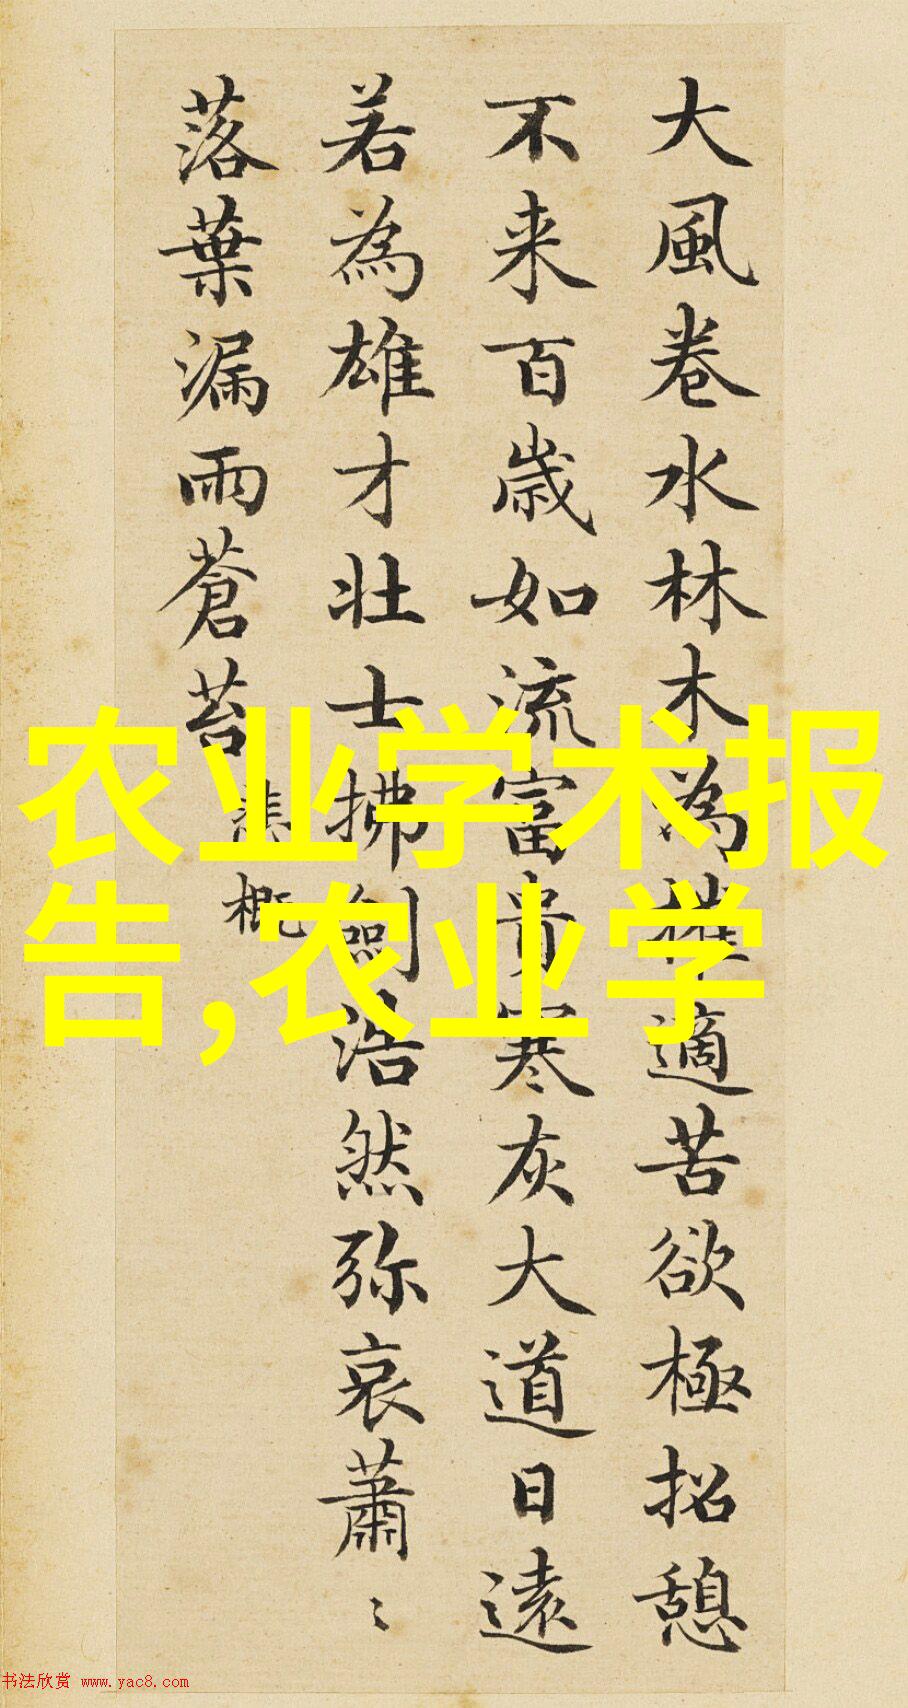 大風卷水林木為摧適苦欲極招憩
不来百歳如流富貴寒灰大道日遠
若為雄才壮士拂劍浩然弥哀蕭〻
落葉漏雨蒼苔
悲概
农业学术报
告,农业学
书法欣赏 www.yac8.com